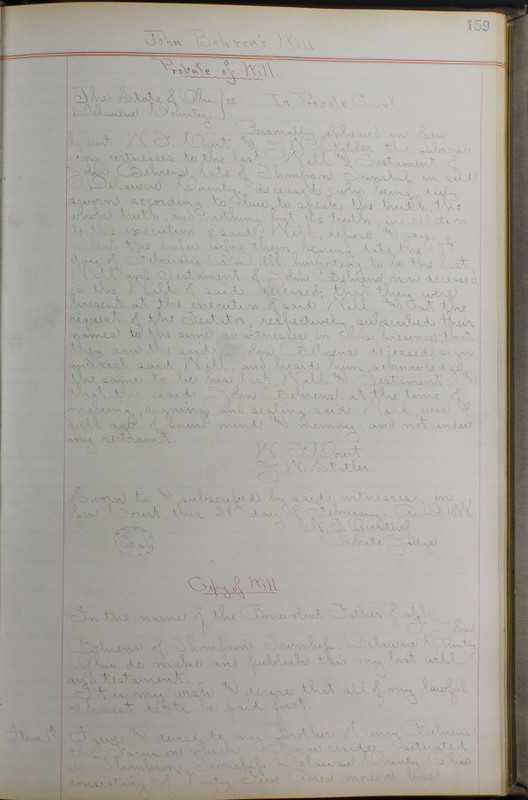 159
John Behren's Will
Probate of Will.
The State of Ohio } ss In Probate Court
Delaware County.
Personally appeared in open
Court W. F. Court & N. Statler the subscrib-
ing witnesses to the last Will & Testament of
John Behrens late of Thompson Township in said
Delaware County, deceased; who being duly
sworn according to law to speak the truth, the
whole truth and nothing but the truth, in relation
to the execution of said Will, depose & say
that the paper before them, bearing date the
day of February A.D. 1888 purporting to be the last
Will and Testament of John Behrens now deceased
is the Will of said deceased; that they were
present at the execution of said Will & at the
request of the Testator, respectively subscribed their
names to the same as witnesses in his presence that
they saw the said John Behrens deceased sign
and seal said Will, and heard him acknowledge
the same to be his last Will & Testament &
that the said John Behrens at the time of
making, signing and sealing said Will, was of
full age, of sound mind & memory, and not under
any restraint.
W. F. Court
J. W. Statler
Sworn to & subscribed by said witnesses in
open Court, this day of February A.D. 1888
Seal
Probate Judge
Copy of Will.
In the name of the Benevolent Father of all. I John
Behrens of Thompson Township Delaware County
Ohio do make and publish this my last will
and testament.
It is my wish & desire that all of my lawful
& honest debts be paid first.
Item 1st I give & devise to my Brother Henry Behrens
the farm on which I now reside, situated
in Thompson Township Delaware County Ohio
consisting of Ninty Five Acres more or less